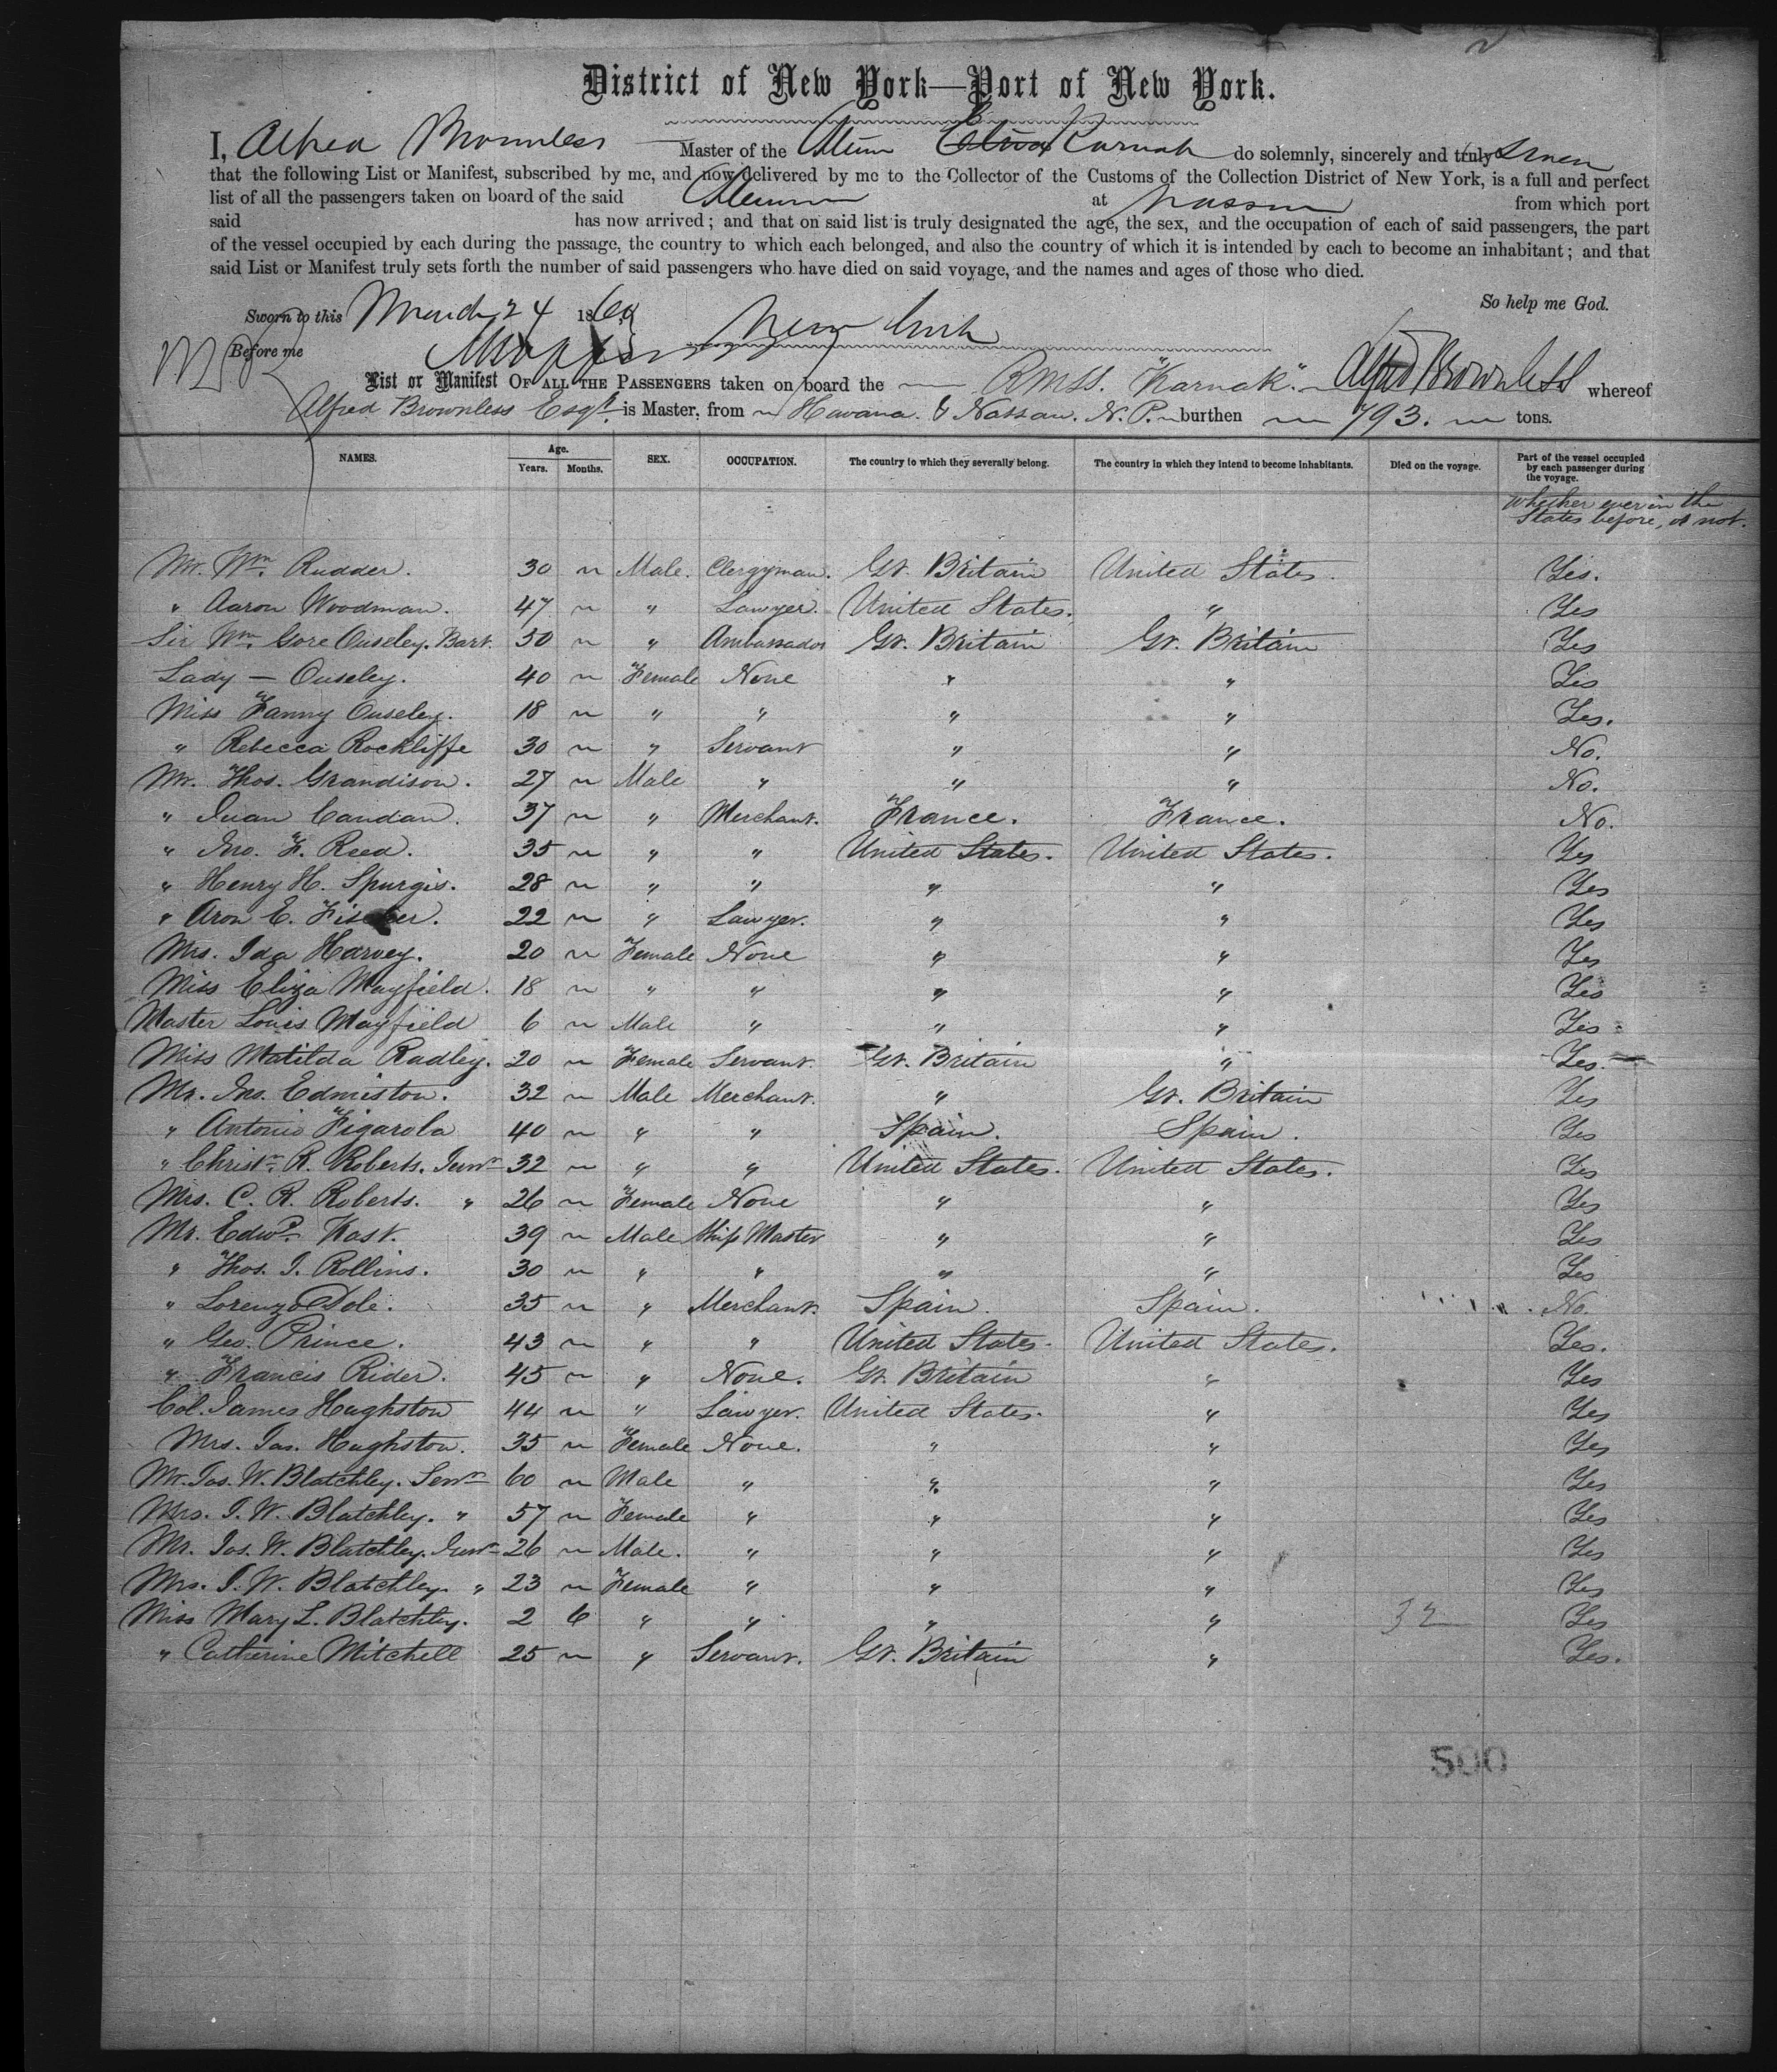 District of New York—Port of New York.
I, Alfred Brownless Master of the Karnak do solemnly, sincerely and truly
that the following List or Manifest, subscribed by me, and now delivered by me to the Collector of the Customs of the Collection District of New York, is a full and perfect
list of all the passengers taken on board of the said at Nassau from which port
said has now arrived; and that on said list is truly designated the age, the sex, and the occupation of each of said passengers, the part
of the vessel occupied by each during the passage, the country to which each belonged, and also the country of which it is intended by each to become an inhabitant; and that
said List or Manifest truly sets forth the number of said passengers who have died on said voyage, and the names and ages of those who died.
So help me God.
Sworn to this March 24 1860
Before me New York
List or Manifest OF ALL THE PASSENGERS taken on board the R.M.S.S. "Karnak." Alfred Brownless whereof
Alfred Brownless Esqr. is Master, from Havana. & Nassau. N.P. burthen 793. tons.
NAMES. Age. Years. Months. SEX. OCCUPATION. The country to which they severally belong. The country in which they intend to become inhabitants. Died on the voyage. Part of the vessel occupied by each passenger during the voyage.
Whether ever in the
States before, or not.
Mr. Wm. Rudder. 30 ~ Male. Clergyman. Gt. Britain United States. Yes.
" Aaron Woodman. 47 ~ " Lawyer. United States. " Yes
Sir Wm. Gore Ouseley. Bart. 50 ~ " Ambassador Gt. Britain Gt. Britain Yes
Lady — Ouseley. 40 ~ Female None " " Yes
Miss Fanny Ouseley. 18 ~ " " " " Yes.
" Rebecca Rockliffe 30 ~ " Servant " " No.
Mr. Thos. Grandison. 27 ~ Male " " " No.
" Juan Candau. 37 ~ " Merchant. France. France. No.
" Jno. F. Reed. 35 ~ " " United States. United States. Yes
" Henry H. Spurgis. 28 ~ " " " " Yes
" Aron E. Fischer. 22 ~ " Lawyer. " " Yes
Mrs. Ida Harvey. 20 ~ Female None " " Yes
Miss Eliza Mayfield. 18 ~ " " " " Yes
Master Louis Mayfield 6 ~ Male " " " Yes
Miss Matilda Radley. 20 ~ Female Servant. Gt. Britain " Yes.
Mr. Jno. Edmiston. 32 ~ Male Merchant. " Gt. Britain Yes
" Antonio Figarola 40 ~ " " Spain. Spain. Yes
" Christr. R. Roberts. Junr 32 ~ " " United States. United States. Yes
Mrs. C. R. Roberts. " 26 ~ Female None " " Yes
Mr. Edwd. Kast. 39 ~ Male Ship Master " " Yes
" Thos. J. Rollins. 30 ~ " " " " Yes
" Lorenzo Dole. 35 ~ " Merchant. Spain. Spain. No.
" Geo. Prince. 43 ~ " " United States. United States. Yes.
" Francis Rider. 45 ~ " None. Gt. Britain " Yes
Col. James Hughston 44 ~ " Lawyer. United States. " Yes
Mrs. Jas. Hughston. 35 ~ Female None. " " Yes
Mr. Jos. W. Blatchley. Senr 60 ~ Male " " " Yes
Mrs. J. W. Blatchley. " 57 ~ Female " " " Yes
Mr. Jos. W. Blatchley. Junr 26 ~ Male. " " " Yes
Mrs. J. W. Blatchley. " 23 ~ Female " " " Yes
Miss Mary L. Blatchley. 2 6 " " " " 32 Yes
" Catherine Mitchell 25 ~ " Servant. Gt. Britain " Yes.
500